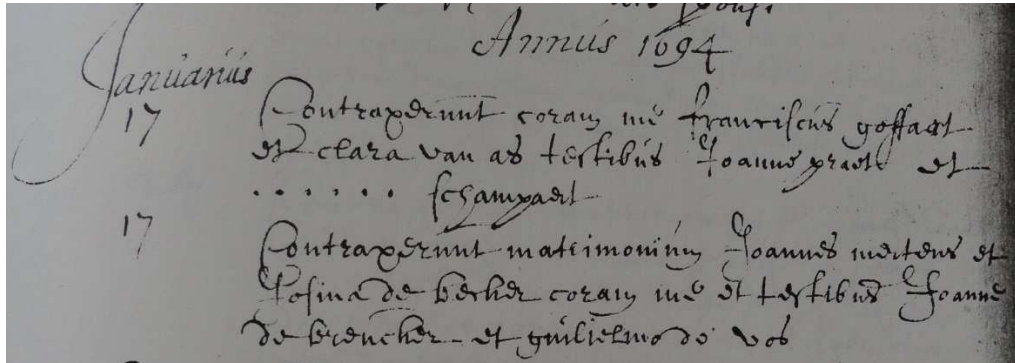 Annus 1694
Januarius
17 Contraxerunt coram me franciscus goffaert
et clara van as testibus Joanne praet et
. . . . . . schampaert
17 Contraxerunt matrimonium Joannes mertens et
Josina de becker coram me et testibus Joanne
de et guilielmo de vos